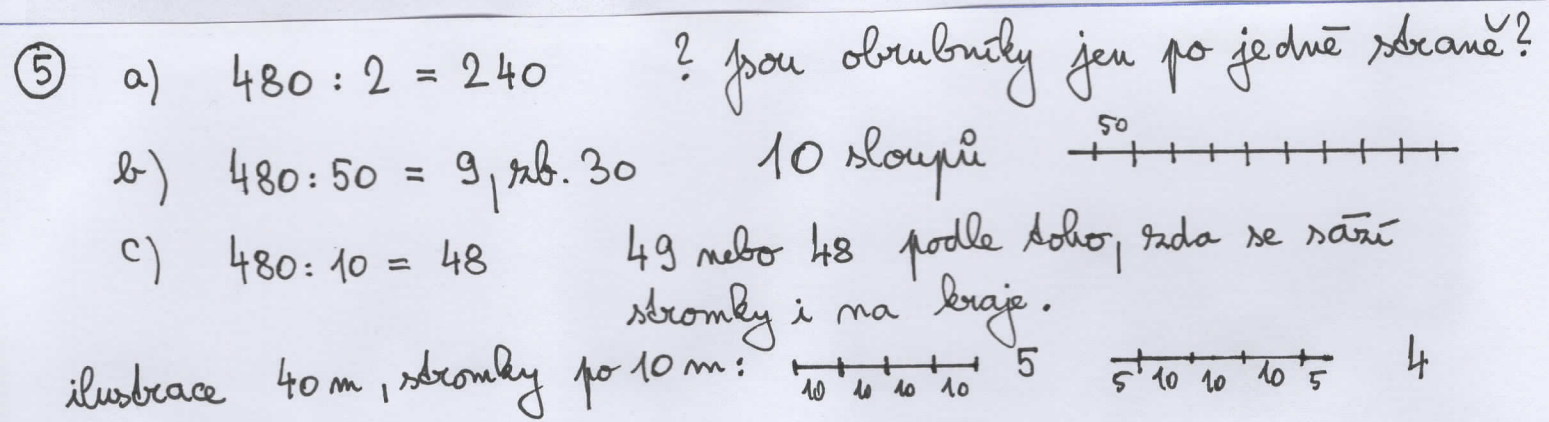 5 a) 480 : 2 = 240 ? Jsou obrubníky jen po jedné straně?
b) 480 : 50 = 9, zb. 30 10 sloupů 50
c) 480 : 10 = 48 49 nebo 48 podle toho, zda se sází
stromky i na kraje.
ilustrace 40 m, stromky po 10 m: 10 10 10 10 5 5 10 10 10 5 4